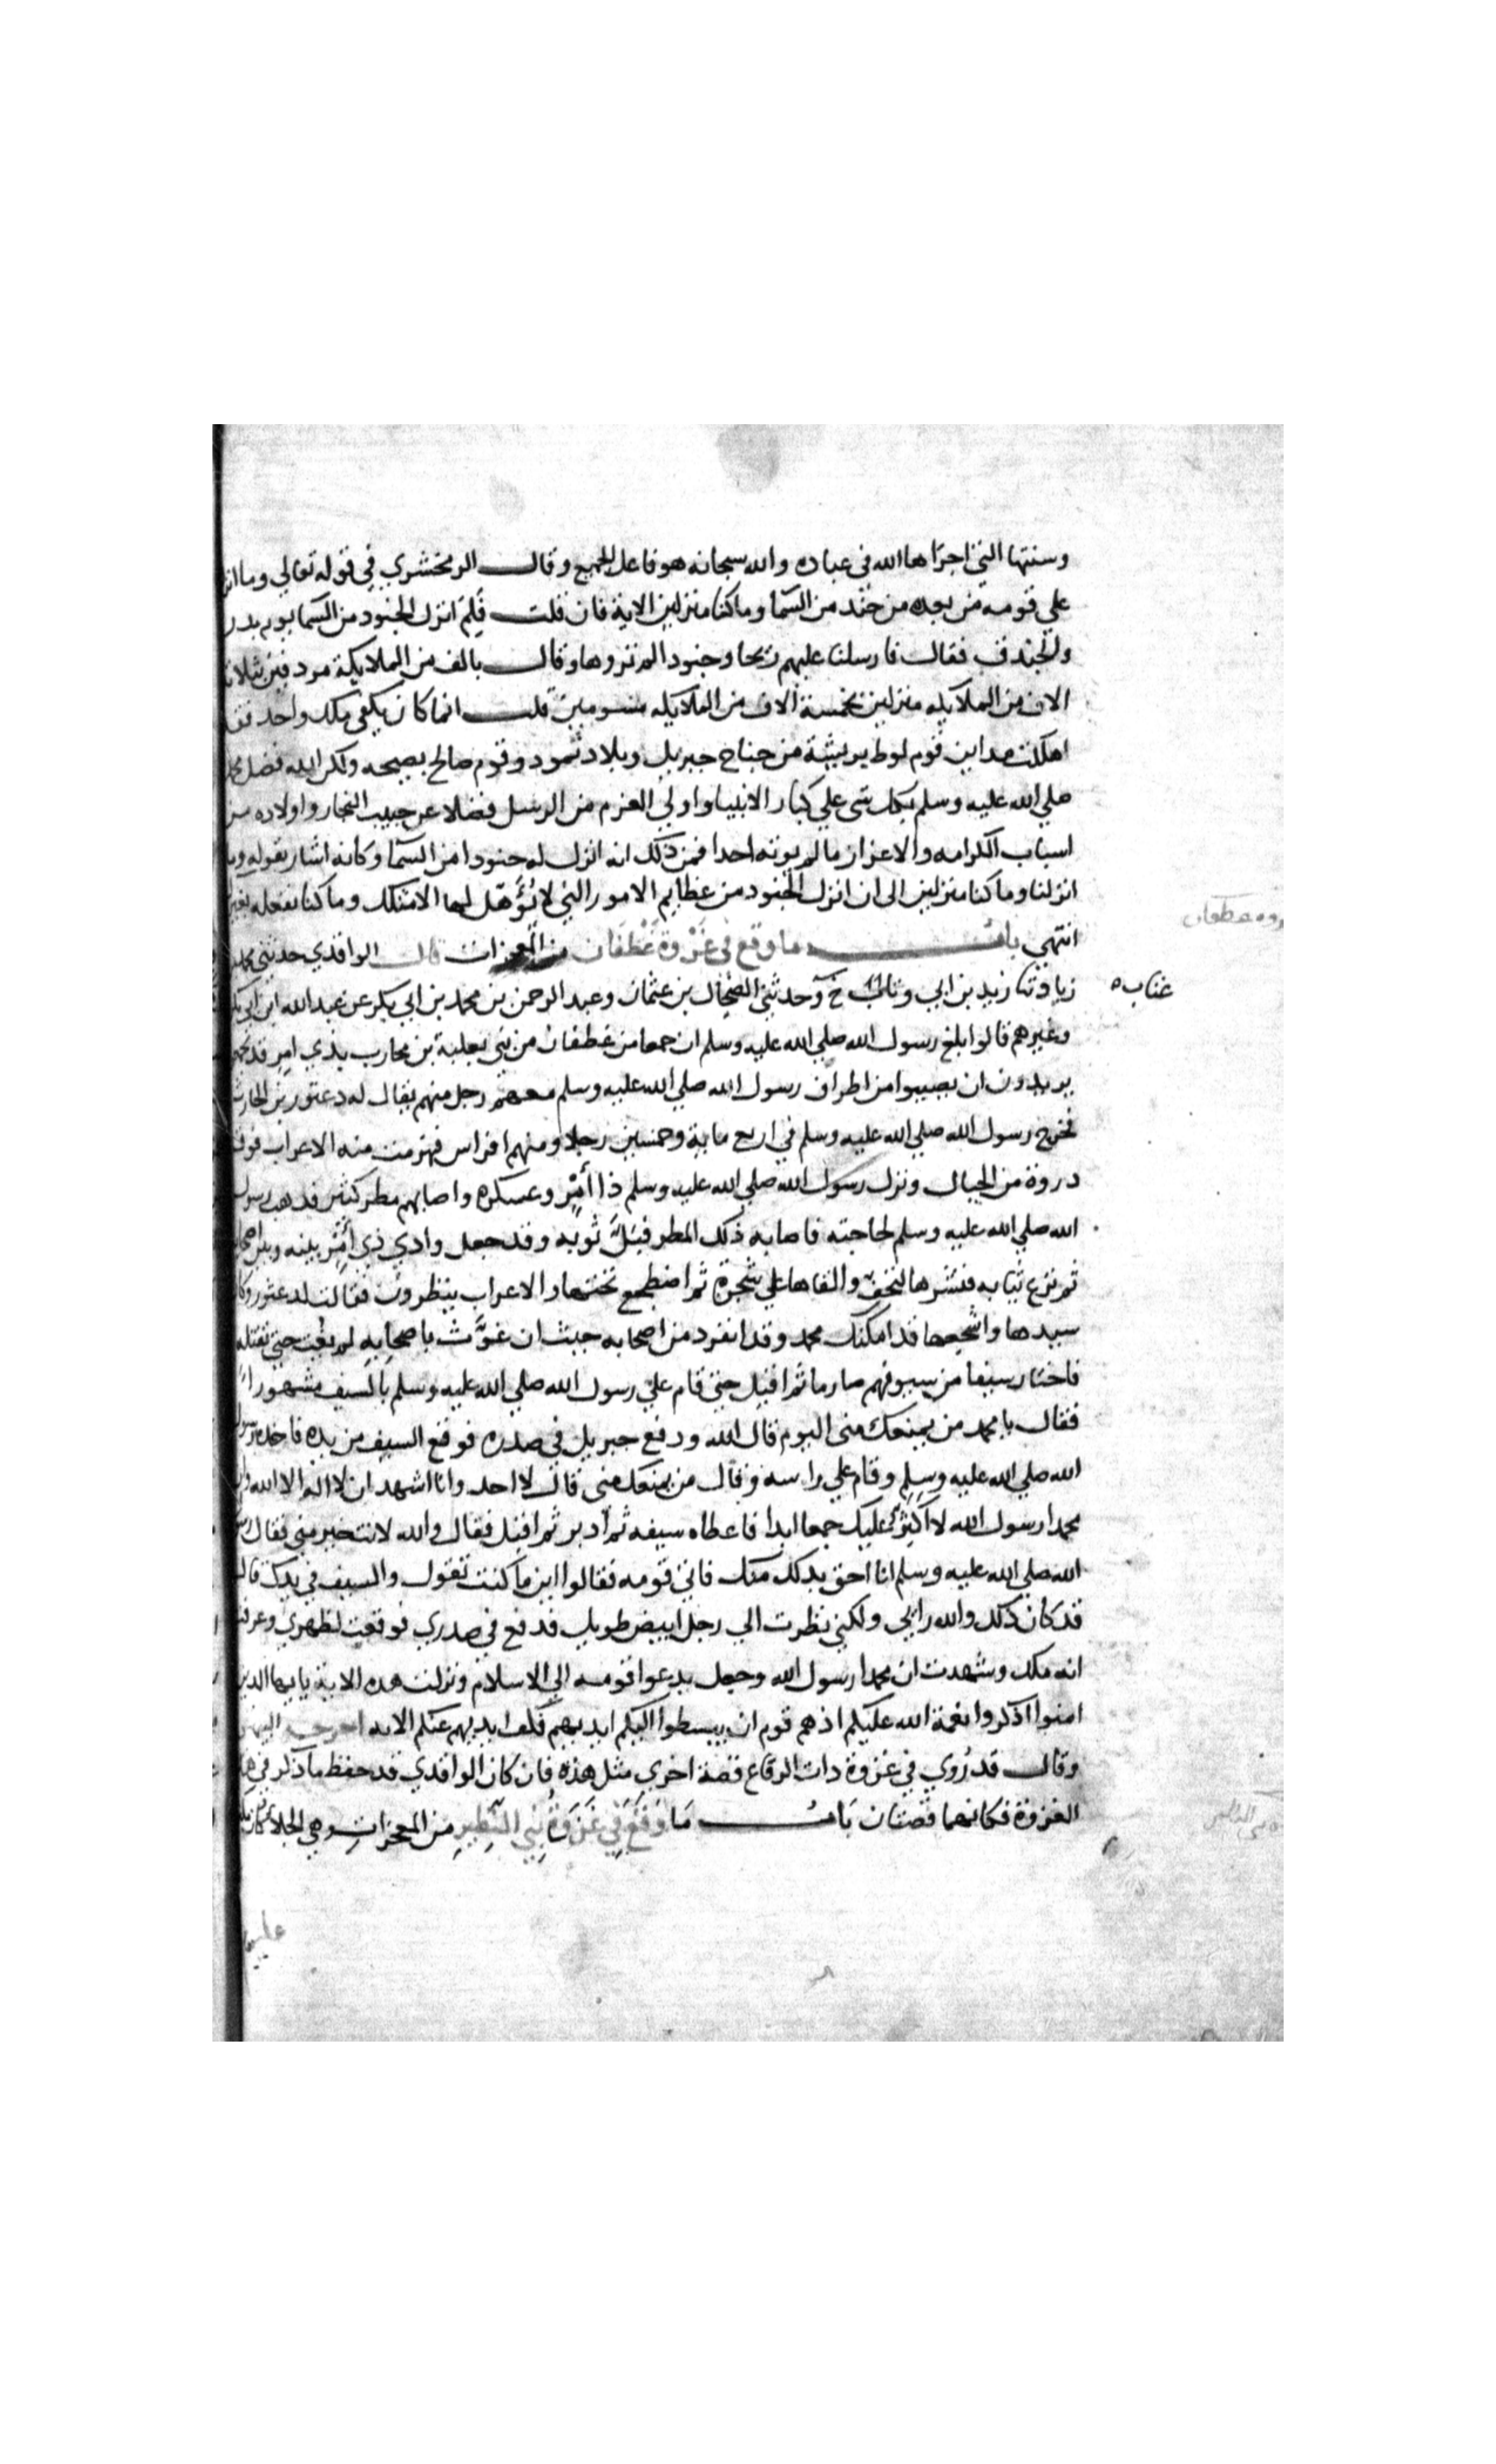 وسنتها التي اجراها الله في عباده والله سبحانه هو فاعل الجميع وقال الزمخشري في قوله تعالي وما
علي قومه من بعده من جند من السما وما كنا منزلين الاية فان قلت فلِمَ انزل الجنود من السما يوم بدر
والخندق فقال فارسلنا عليهم ريحا وجنودا لم تروها وقال بالف من الملايكة مردفين بثلاثة
الاف من الملايكه منزلين بخمسة الاف من الملايكه مسومين قلت انما كان يكفي ملك واحد فقد
اهلكت مداين قوم لوط بريشة من جناح جبريل وبلاد ثمود وقوم صالح بصيحه ولكن الله فضل محمدا
صلي الله عليه وسلم بكل شي علي كبار الانبيا واولي العزم من الرسل فضلا عن حبيب النجار واولاده من
اسباب الكرامه والاعزاز ما لم يوته احدا فمن ذلك انه انزل له جنودا من السما وكانه اشار بقوله وما
انزلنا وما كنا منزلين الى ان انزل الجنود من عظايم الامور التي لا يُؤَهّل لها الا مثلك وما كنا نفعله بغيرك
انتهي باب ما وقع في غَزْوة غَطَفَان من المعجزات قال الواقدي حدثني محمد بن
زياد ثنا زيد بن ابي وثاب خ وحدثني الضحاك بن عثمان وعبد الرحمن بن محمد بن ابي بكر عن عبد الله ابن ابي بكر
عتاب ه
وغيرهم قالوا بلغ رسول الله صلي الله عليه وسلم ان جمعا من غطفان من بني ثعلبة بن محارب بذي امر قد
يريدون ان يصيبوا من اطراف رسول الله صلي الله عليه وسلم معهم رجل منهم يقال له دعثور بن الحارث
فخرج رسول الله صلي الله عليه وسلم في اربع ماية وخمسين رجلا ومنهم افراس فهزمت منه الاعراب فوق
دروة من الجبال ونزل رسول الله صلي الله عليه وسلم ذا أمر وعسكره واصابهم مطر كثير فذهب رسول
الله صلي الله عليه وسلم لحاجته فاصابه ذلك المطر فبَلَّ ثوبه وقد جعل وادي ذي أمر بينه وبين اصحابه
ثم نزع ثيابه فنشرها لتجف والقاها علي شجرة ثم اضطجع تحتها والاعراب ينظرون فقالت لدعثور وكان
سيدها واشجعها قد امكنك محمد وقد انفرد من اصحابه حيث ان غوَّث باصحابه لم يغث حتي تقتله
فاختار سيفا من سيوفهم صارما ثم اقبل حتي قام علي رسول الله صلي الله عليه وسلم بالسيف مشهورا
فقال يا محمد من يمنعك مني اليوم قال الله ودفع جبريل في صدره فوقع السيف من يده فاخذه رسول
الله صلي الله عليه وسلم وقام علي راسه وقال من يمنعك مني قال لا احد وانا اشهد ان لا اله الا الله وان
محمدا رسول الله لا اكثر عليك جمعا ابدا فاعطاه سيفه ثم ادبر ثم اقبل فقال والله لانت خير مني فقال رسول
الله صلي الله عليه وسلم انا احق بذلك منك فاتي قومه فقالوا اين ما كنت تقول والسيف في يدك قال
قد كان ذلك والله رايي ولكني نظرت الي رجل ابيض طويل فدفع في صدري فوقعت لظهري وعرفت
انه ملك وشهدت ان محمدا رسول الله وجعل يدعوا قومه الي الاسلام ونزلت هده الاية يا ايها الدين
امنوا اذكروا نعمة الله عليكم اذ هم قوم ان يبسطوا اليكم ايديهم فكف ايديهم عنكم الايه اخرجه البيهقي
وقال قد رُوي في غزوة دات الرقاع قصة اخري مثل هذه فان كان الواقدي قد حفظ ما ذكر في هذه
الغزوة فكانهما قصتان بَاب مَا وَقَعَ فِي غَزوَةُ بَنِي النَّضِيرِ من المعجزات وهي الجلا